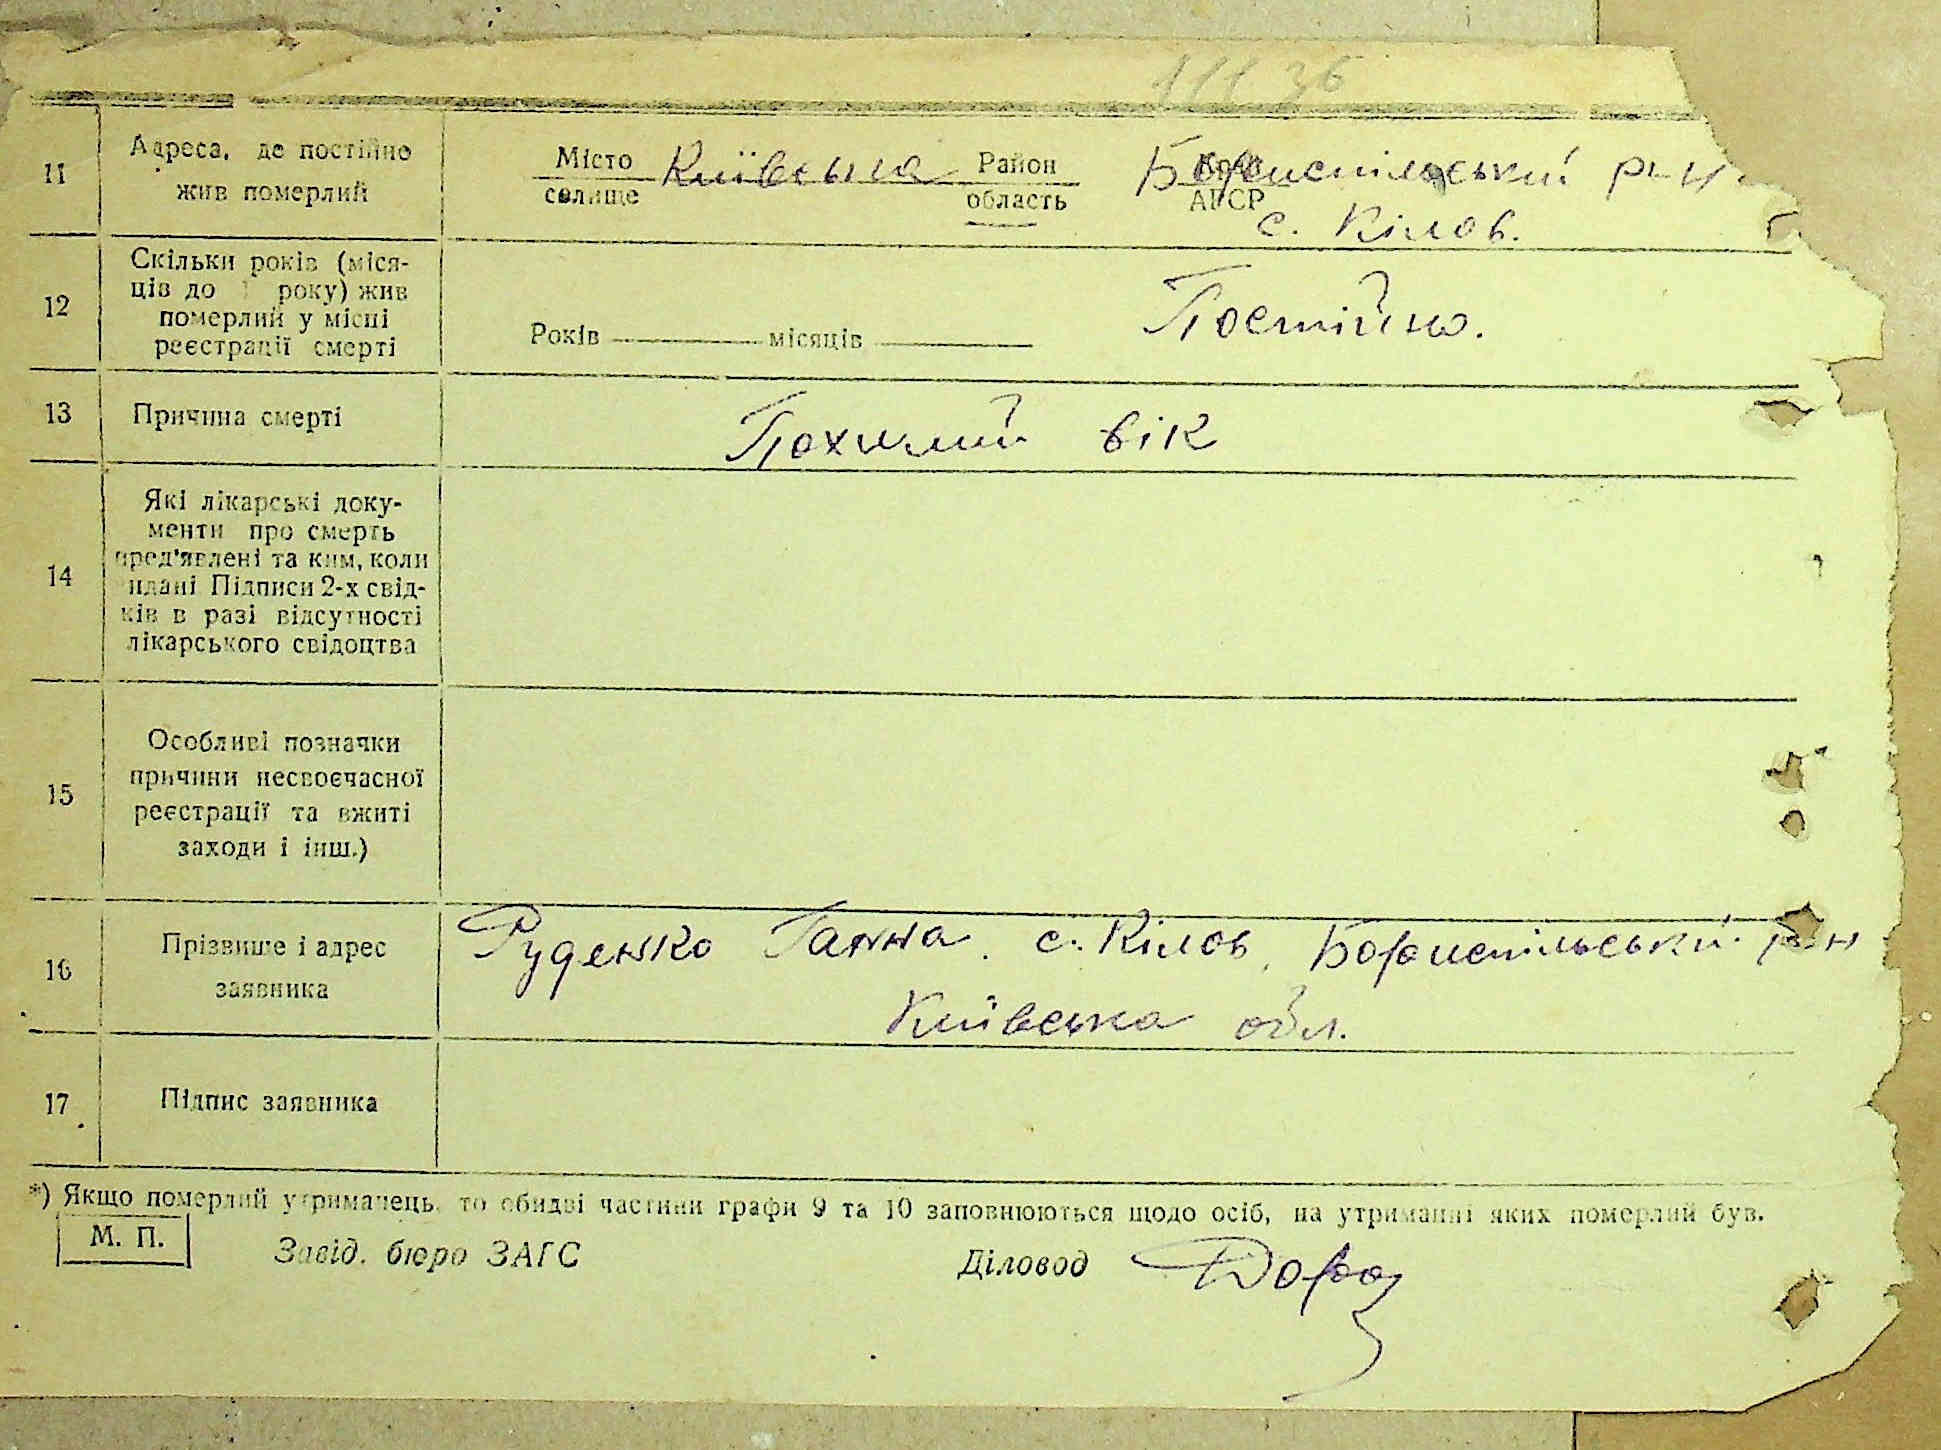 111 36
11
Адреса, де постійно
жив померлий
Місто Київська Район Бориспільський р-н
селище область АРСР
с. Кілов.
12
Скільки років (міся-
ців до 1 року) жив
померлий у місці
реєстрації смерті
Років місяців Постійно.
13
Причина смерті
Похилий вік
14
Які лікарські доку-
менти про смерть
пред'явлені та ким, коли
видані Підписи 2-х свід-
ків в разі відсутності
лікарського свідоцтва
15
Особливі позначки
причини несвоєчасної
реєстрації та вжиті
заходи і інш.)
16
Прізвише і адрес
заявника
Руденко Ганна. с. Кілов, Бориспільський р-н
Київська обл.
17
Підпис заявника
*) Якщо померлий утриманець, то обидві частини графи 9 та 10 заповнюються щодо осіб, на утриманні яких померлий був.
М. П.
Завід. бюро ЗАГС Діловод